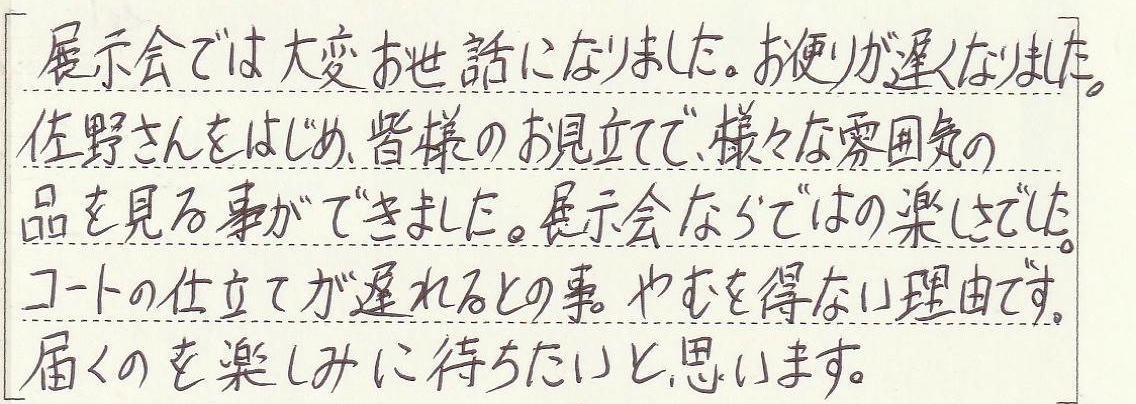 展示会では大変お世話になりました。お便りが遅くなりました。
佐野さんをはじめ、皆様のお見立てで、様々な雰囲気の
品を見る事ができました。展示会ならではの楽しさでした。
コートの仕立てが遅れるとの事。やむを得ない理由です。
届くのを楽しみに待ちたいと思います。